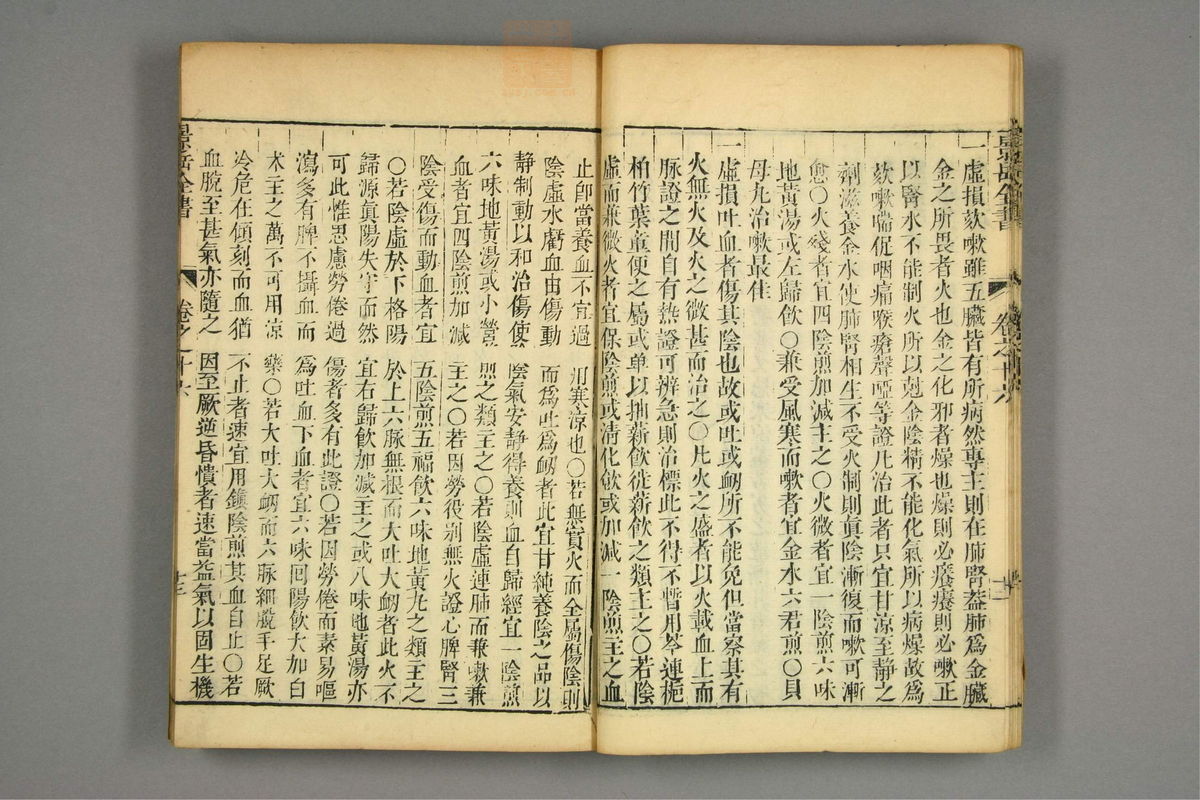 景岳全書
一虛損欬嗽雖五臟皆有所病然專主則在肺腎葢肺為金臟
金之所畏者火也金之化邪者燥也燥則必癢癢則必嗽正
以腎水不能制火所以尅金陰精不能化氣所以病燥故為
欬嗽喘促咽痛喉瘡聲啞等證凡治此者只宜甘涼至靜之
劑滋養金水使肺腎相生不受火制則眞陰漸復而嗽可漸
愈〇火殘者宜四陰煎加減主之〇火微者宜一陰煎六味
地黃湯或左歸飲〇兼受風寒而嗽者宜金水六君煎〇貝
母丸治嗽最佳
一虛損吐血者傷其陰也故或吐或衂所不能免但當察其有
火無火及火之微甚而治之〇凡火之盛者以火載血上而
脉證之間自有熱證可辨急則治標此不得不暫用芩連梔
柏竹葉童便之屬或单以抽薪飲徙薪飲之類主之〇若陰
虛而兼微火者宜保陰煎或清化飲或加減一陰煎主之血
止卽當養血不宜過用寒涼也〇若無實火而全屬傷陰則
陰虛水虧血由傷動而為吐為衂者此宜甘純養陰之品以
靜制動以和治傷使陰氣安靜得養則血自歸經宜一陰煎
六味地黃湯或小營煎之類主之〇若陰虛連肺而兼嗽兼
血者宜四陰煎加減主之〇若因勞役別無火證心脾腎三
陰受傷而動血者宜五陰煎五福飲六味地黃丸之類主之
〇若陰虛於下格陽於上六脉無根而大吐大衂者此火不
歸源眞陽失守而然宜右歸飲加減主之或八味地黃湯亦
可此惟思慮勞倦過傷者多有此證〇若因勞倦而素易嘔
瀉多有脾不攝血而為吐血下血者宜六味囘陽飲大加白
朮主之萬不可用涼藥〇若大吐大衂而六脉細脫手足厥
冷危在傾刻而血猶不止者速宜用鎮陰煎其血自止〇若
血脫至甚氣亦隨之因至厥逆昏憒者速當益氣以固生機
景岳全書
卷之十六
十三